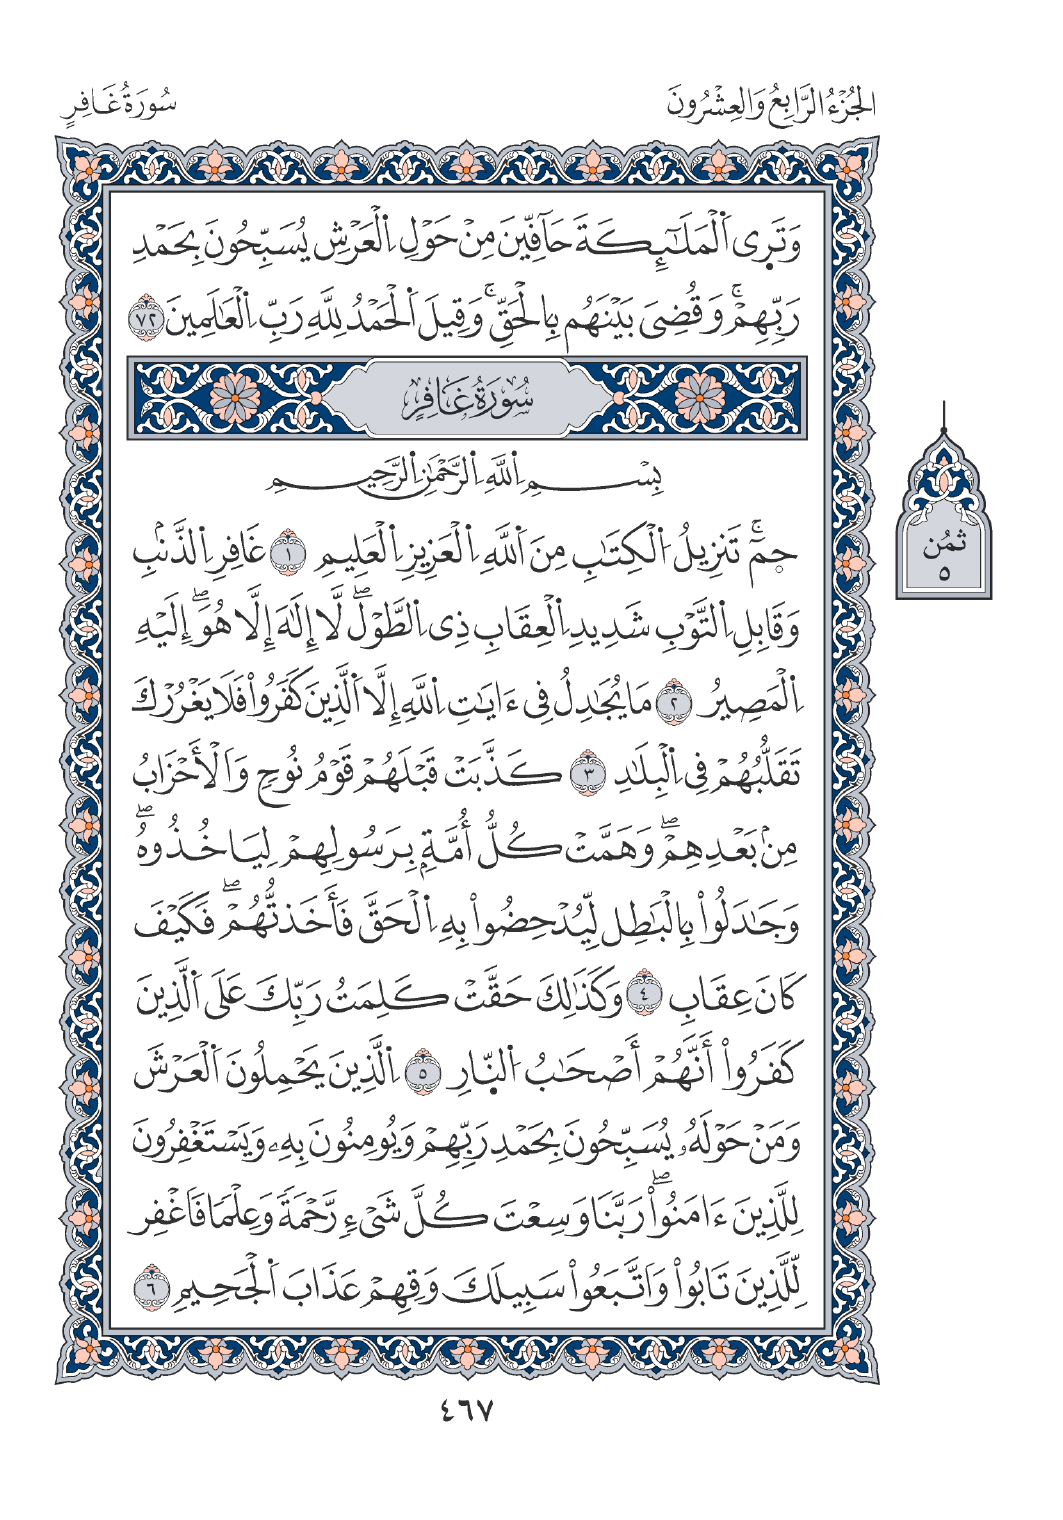 الجُزْءُ الرَّابِعُ وَالعِشْرُونَ
سُورَةُ غَافِرٍ
وَتَرَى اَ۬لْمَلَٰٓئِكَةَ حَآفِّينَ مِنْ حَوْلِ اِ۬لْعَرْشِ يُسَبِّحُونَ بِحَمْدِ
رَبِّهِمْۖ وَقُضِيَ بَيْنَهُم بِالْحَقِّۖ وَقِيلَ اَ۬لْحَمْدُ لِلهِ رَبِّ اِ۬لْعَٰلَمِينَ ٧٢
سُورَةُ غَافِرٍ
بِسْمِ اِ۬للَّهِ اِ۬لرَّحْمَٰنِ اِ۬لرَّحِيمِ
حمٓۖ تَنزِيلُ اُ۬لْكِتَٰبِ مِنَ اَ۬للَّهِ اِ۬لْعَزِيزِ اِ۬لْعَلِيمِ ١ غَافِرِ اِ۬لذَّنۢبِ
وَقَابِلِ اِ۬لتَّوْبِ شَدِيدِ اِ۬لْعِقَابِ ذِى اِ۬لطَّوْلِۖ لَا إِلَٰهَ إِلَّا هُوَۖ إِلَيْهِ
اِ۬لْمَصِيرُ ٢ مَا يُجَٰدِلُ فِى ءَايَٰتِ اِ۬للَّهِ إِلَّا اَ۬لَّذِينَ كَفَرُواْ فَلَا يَغْرُرْكَ
تَقَلُّبُهُمْ فِى اِ۬لْبِلَٰدِ ٣ كَذَّبَتْ قَبْلَهُمْ قَوْمُ نُوحٍ وَالْأَحْزَابُ
مِنۢ بَعْدِهِمْۖ وَهَمَّتْ كُلُّ أُمَّةِۭ بِرَسُولِهِمْ لِيَاخُذُوهُۖ
وَجَٰدَلُواْ بِالْبَٰطِلِ لِّيُدْحِضُواْ بِهِ اِ۬لْحَقَّ فَأَخَذتُّهُمْۖ فَكَيْفَ
كَانَ عِقَابِ ٤ وَكَذَٰلِكَ حَقَّتْ كَلِمَتُ رَبِّكَ عَلَى اَ۬لَّذِينَ
كَفَرُواْ أَنَّهُمْ أَصْحَٰبُ اُ۬لنّ۪ارِ ٥ اِ۬لَّذِينَ يَحْمِلُونَ اَ۬لْعَرْشَ
وَمَنْ حَوْلَهُۥ يُسَبِّحُونَ بِحَمْدِ رَبِّهِمْ وَيُومِنُونَ بِهِۦ وَيَسْتَغْفِرُونَ
لِلَّذِينَ ءَامَنُواْۖ رَبَّنَا وَسِعْتَ كُلَّ شَىْءٍ رَّحْمَةً وَعِلْمًا فَاغْفِر
لِّلَّذِينَ تَابُواْ وَاتَّبَعُواْ سَبِيلَكَ وَقِهِمْ عَذَابَ اَ۬لْجَحِيمِ ٦
ثمُن
٥
٤٦٧